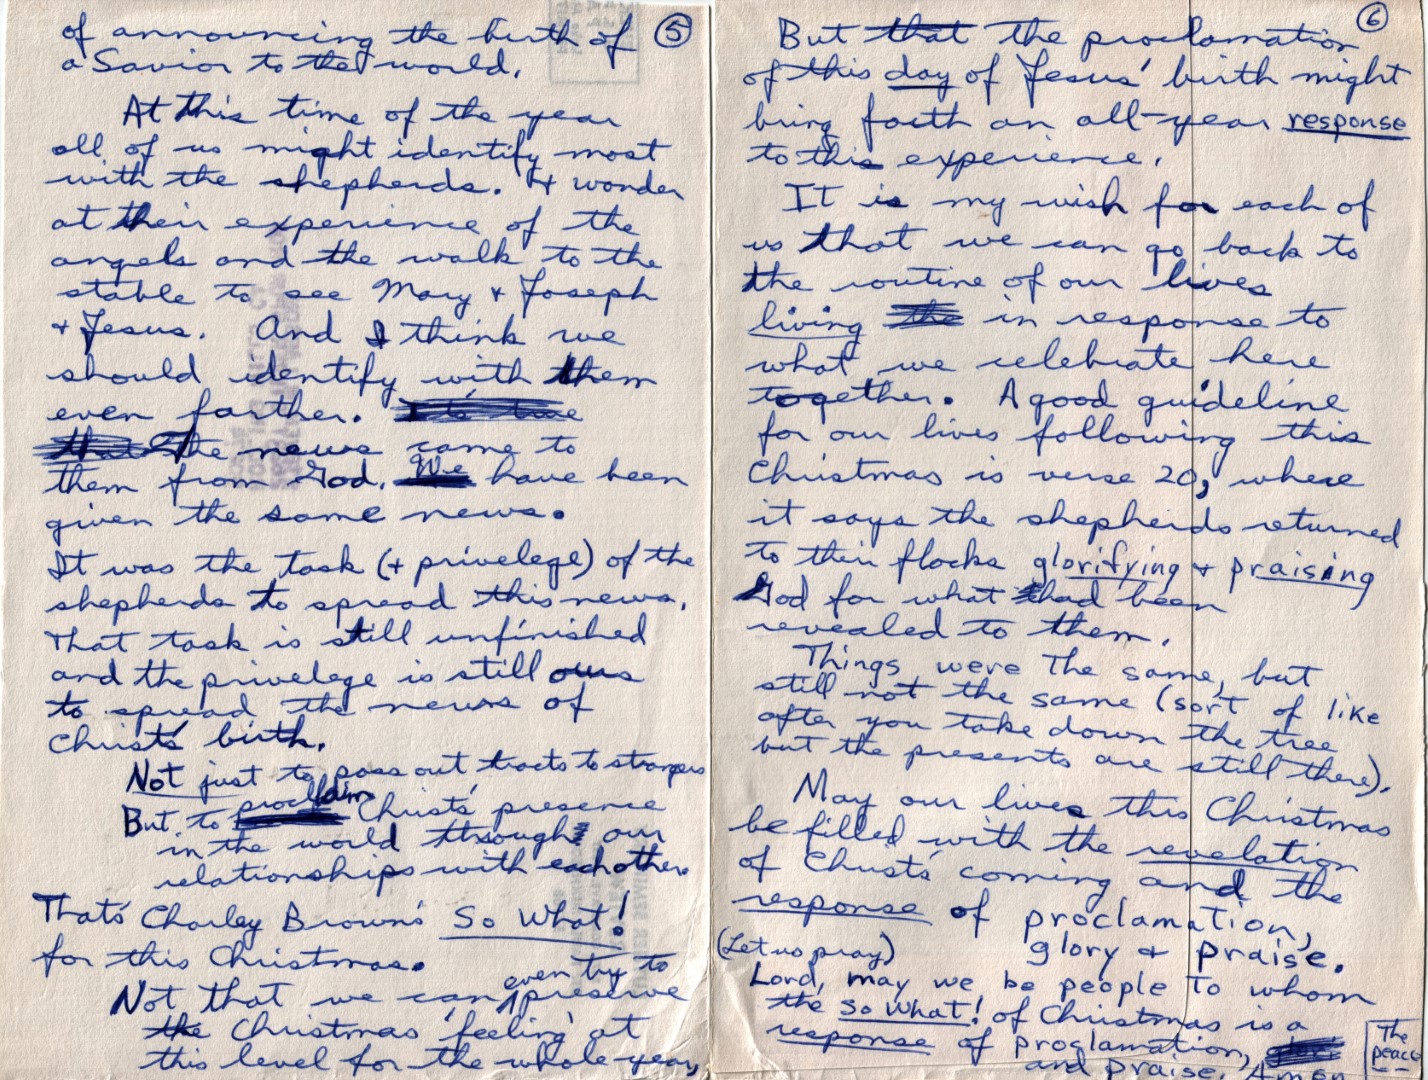 5
of announcing the birth of
a Savior to the world.
At this time of the year
all of us might identify most
with the shepherds. & wonder
at their experience of the
angels and the walk to the
stable to see Mary & Joseph
& Jesus. And I think we
should identify with them
even farther.
The news came to
them from God. We have been
given the same news.
It was the task (+ privelege) of the
shepherds to spread this news.
That task is still unfinished
and the privelege is still ours
to spread the news of
Christ's birth.
Not just to pass out tracts to strangers
But to proclaim Christ's presence
in the world through our
relationships with each other.
That's Charley Brown's So What!
for this Christmas.
Not that we can even try to preserve
the Christmas 'feeling' at
this level for the whole year,
6
But that the proclamation
of this day of Jesus' birth might
bring forth an all-year response
to this experience.
It is my wish for each of
us that we can go back to
the routine of our lives
living the in response to
what we celebrate here
together. A good guideline
for our lives following this
Christmas is verse 20, where
it says the shepherds returned
to their flocks glorifying & praising
God for what had been
revealed to them.
Things were the same, but
still not the same (sort of like
after you take down the tree
but the presents are still there).
May our lives this Christmas
be filled with the revelation
of Christ's coming and the
response of proclamation,
glory & praise.
(Let us pray)
Lord, may we be people to whom
the So What! of Christmas is a
response of proclamation,
and praise. Amen
The
peace